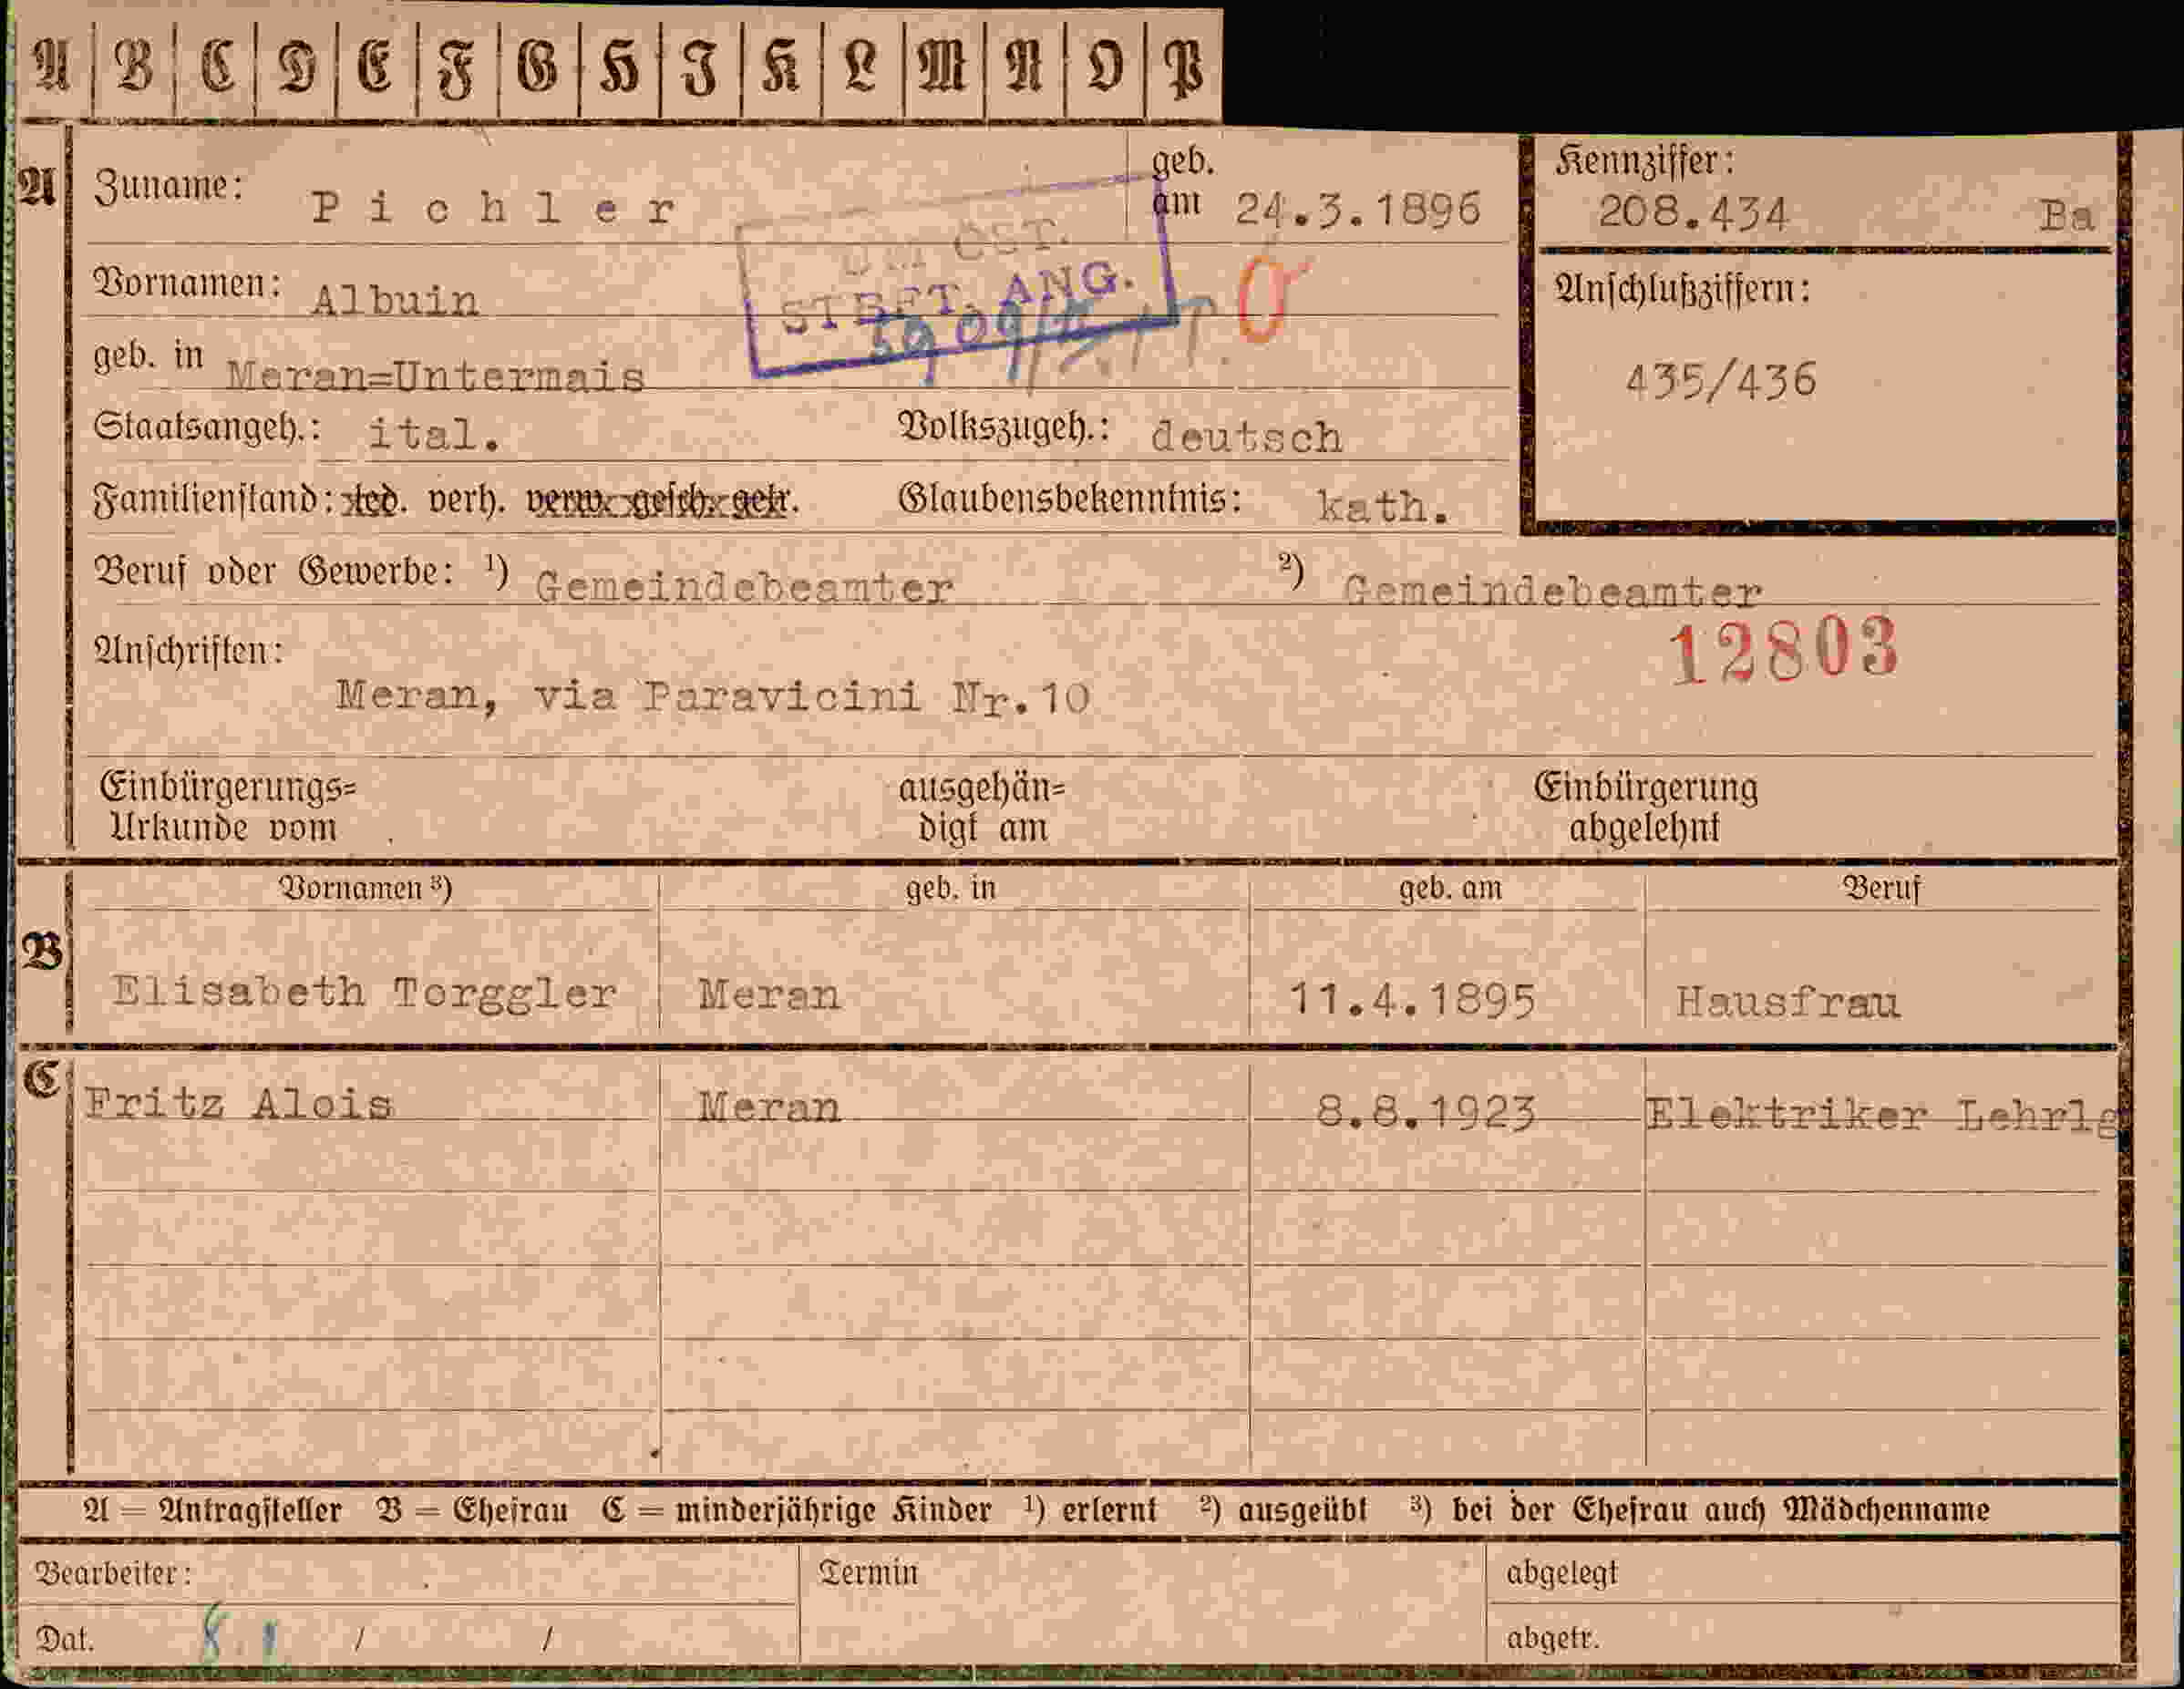 A B C D E F G H I K L M N O P
A Zuname: Pichler geb. am 24.3.1896
Kennziffer: 208.434 Ba
Vornamen: Albuin
ANG.
geb. in Meran=Untermais
Anschlußziffern:
435/436
Staatsangeh.: ital. Volkszugeh.: deutsch
Familienstand: led. verh. verw. gesch. getr. Glaubensbekenntnis: kath.
Beruf oder Gewerbe: ¹) Gemeindebeamter ²) Gemeindebeamter
12803
Anschriften:
Meran, via Paravicini Nr.10
Einbürgerungs=
Urkunde vom
ausgehän=
digt am
Einbürgerung
abgelehnt
B Vornamen ³) geb. in geb. am Beruf
Elisabeth Torggler Meran 11.4.1895 Hausfrau
C Fritz Alois Meran 8.8.1923 Elektriker Lehrlg
A = Antragsteller B = Ehefrau C = minderjährige Kinder ¹) erlernt ²) ausgeübt ³) bei der Ehefrau auch Mädchenname
Bearbeiter: Termin abgelegt
Dat. / / abgetr.